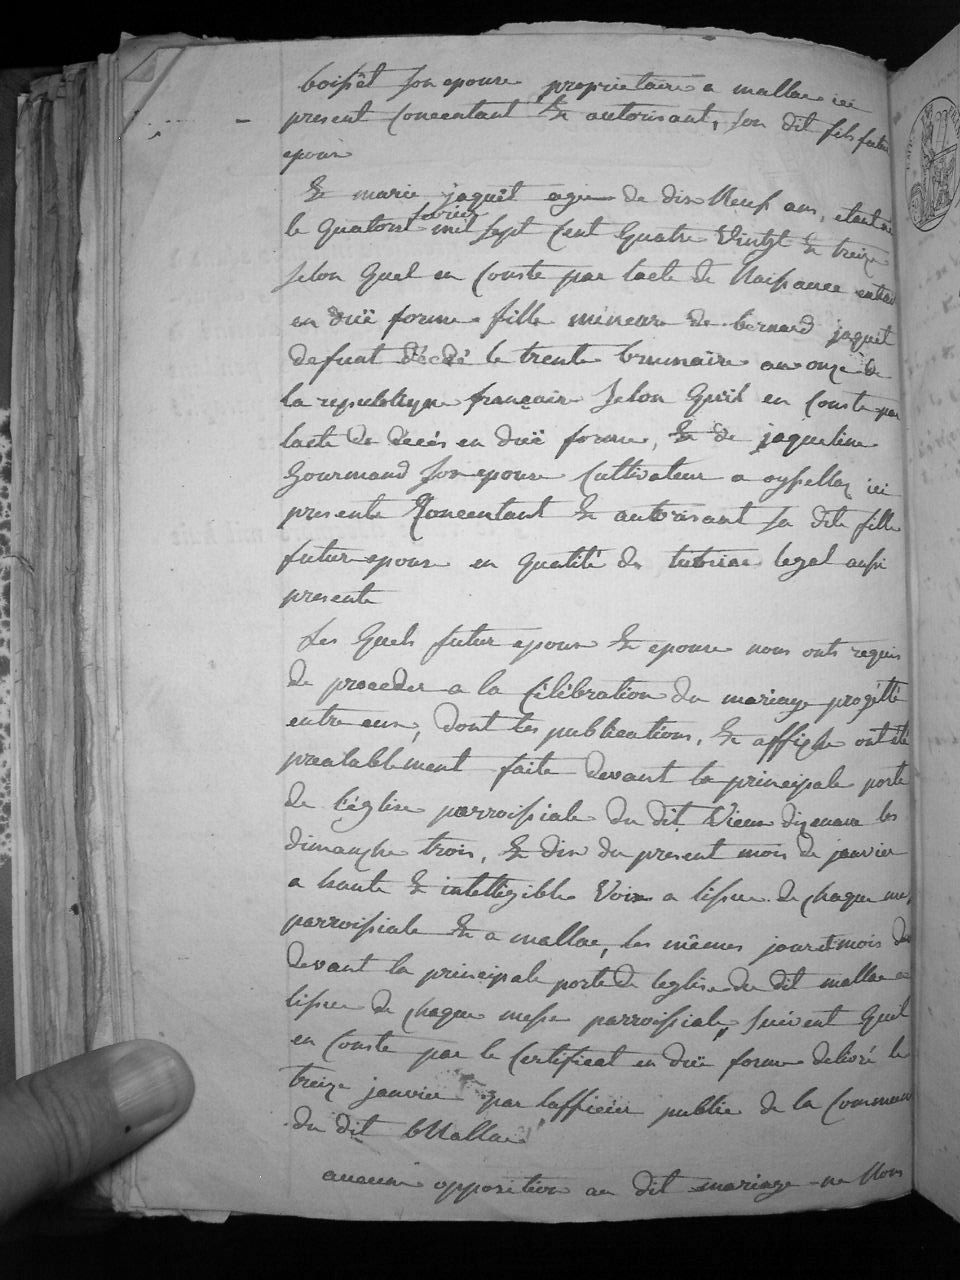 boissêt son epouse propriétaire a mallac ici
present Concentant Et autorisant, son dit fils futur
epoux
Et marie jaquêt agée de dix Neuf ans, etant née
le quatorze fevrier mil sept Cent Quatre Vingt Et treize
selon Quel en Conste par lacte de Naissance
en duë forme fille mineure de bernard jaquêt
defunt décédé le trente brumaire an onze de
la republique française selon Quil en Conste par
lacte de decés en duë forme, Et de jaqueline
Gourmand son epouse Cultivateur a ici
presente Concentant Et autorisant sa dite fille
futur epouse en qualité de tutrice legal aussi
presente
Les Quels futur epoux Et epouse nous onts requis
de proceder a la Célébration du mariage progétté
entre eux, dont les publications, Et affiche ont été
prealablement faite devant la principale porte
de l'église parroissiale du dit Vieux dizenave les
dimanche trois, Et dix du present mois de janvier
a haute Et intelligible Voix a lissue de chaque messe
parroissiale Et a mallac, les mêmes jour et mois
devant la principale porte de leglise du dit mallac a
lissue de chaque messe parroissiale, suivent Quil
en Conste par le Certificat en duë forme delivré le
treize janvier par lofficier public de la Commune
du dit Mallac
aucune opposition au dit mariage ne Nous